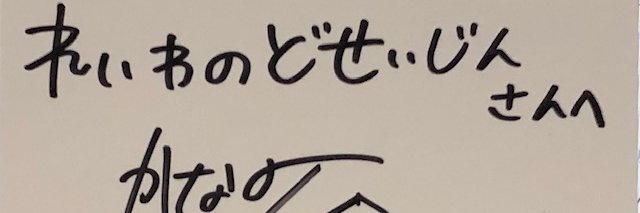 れいわのどせいじん
さんへ
かなの